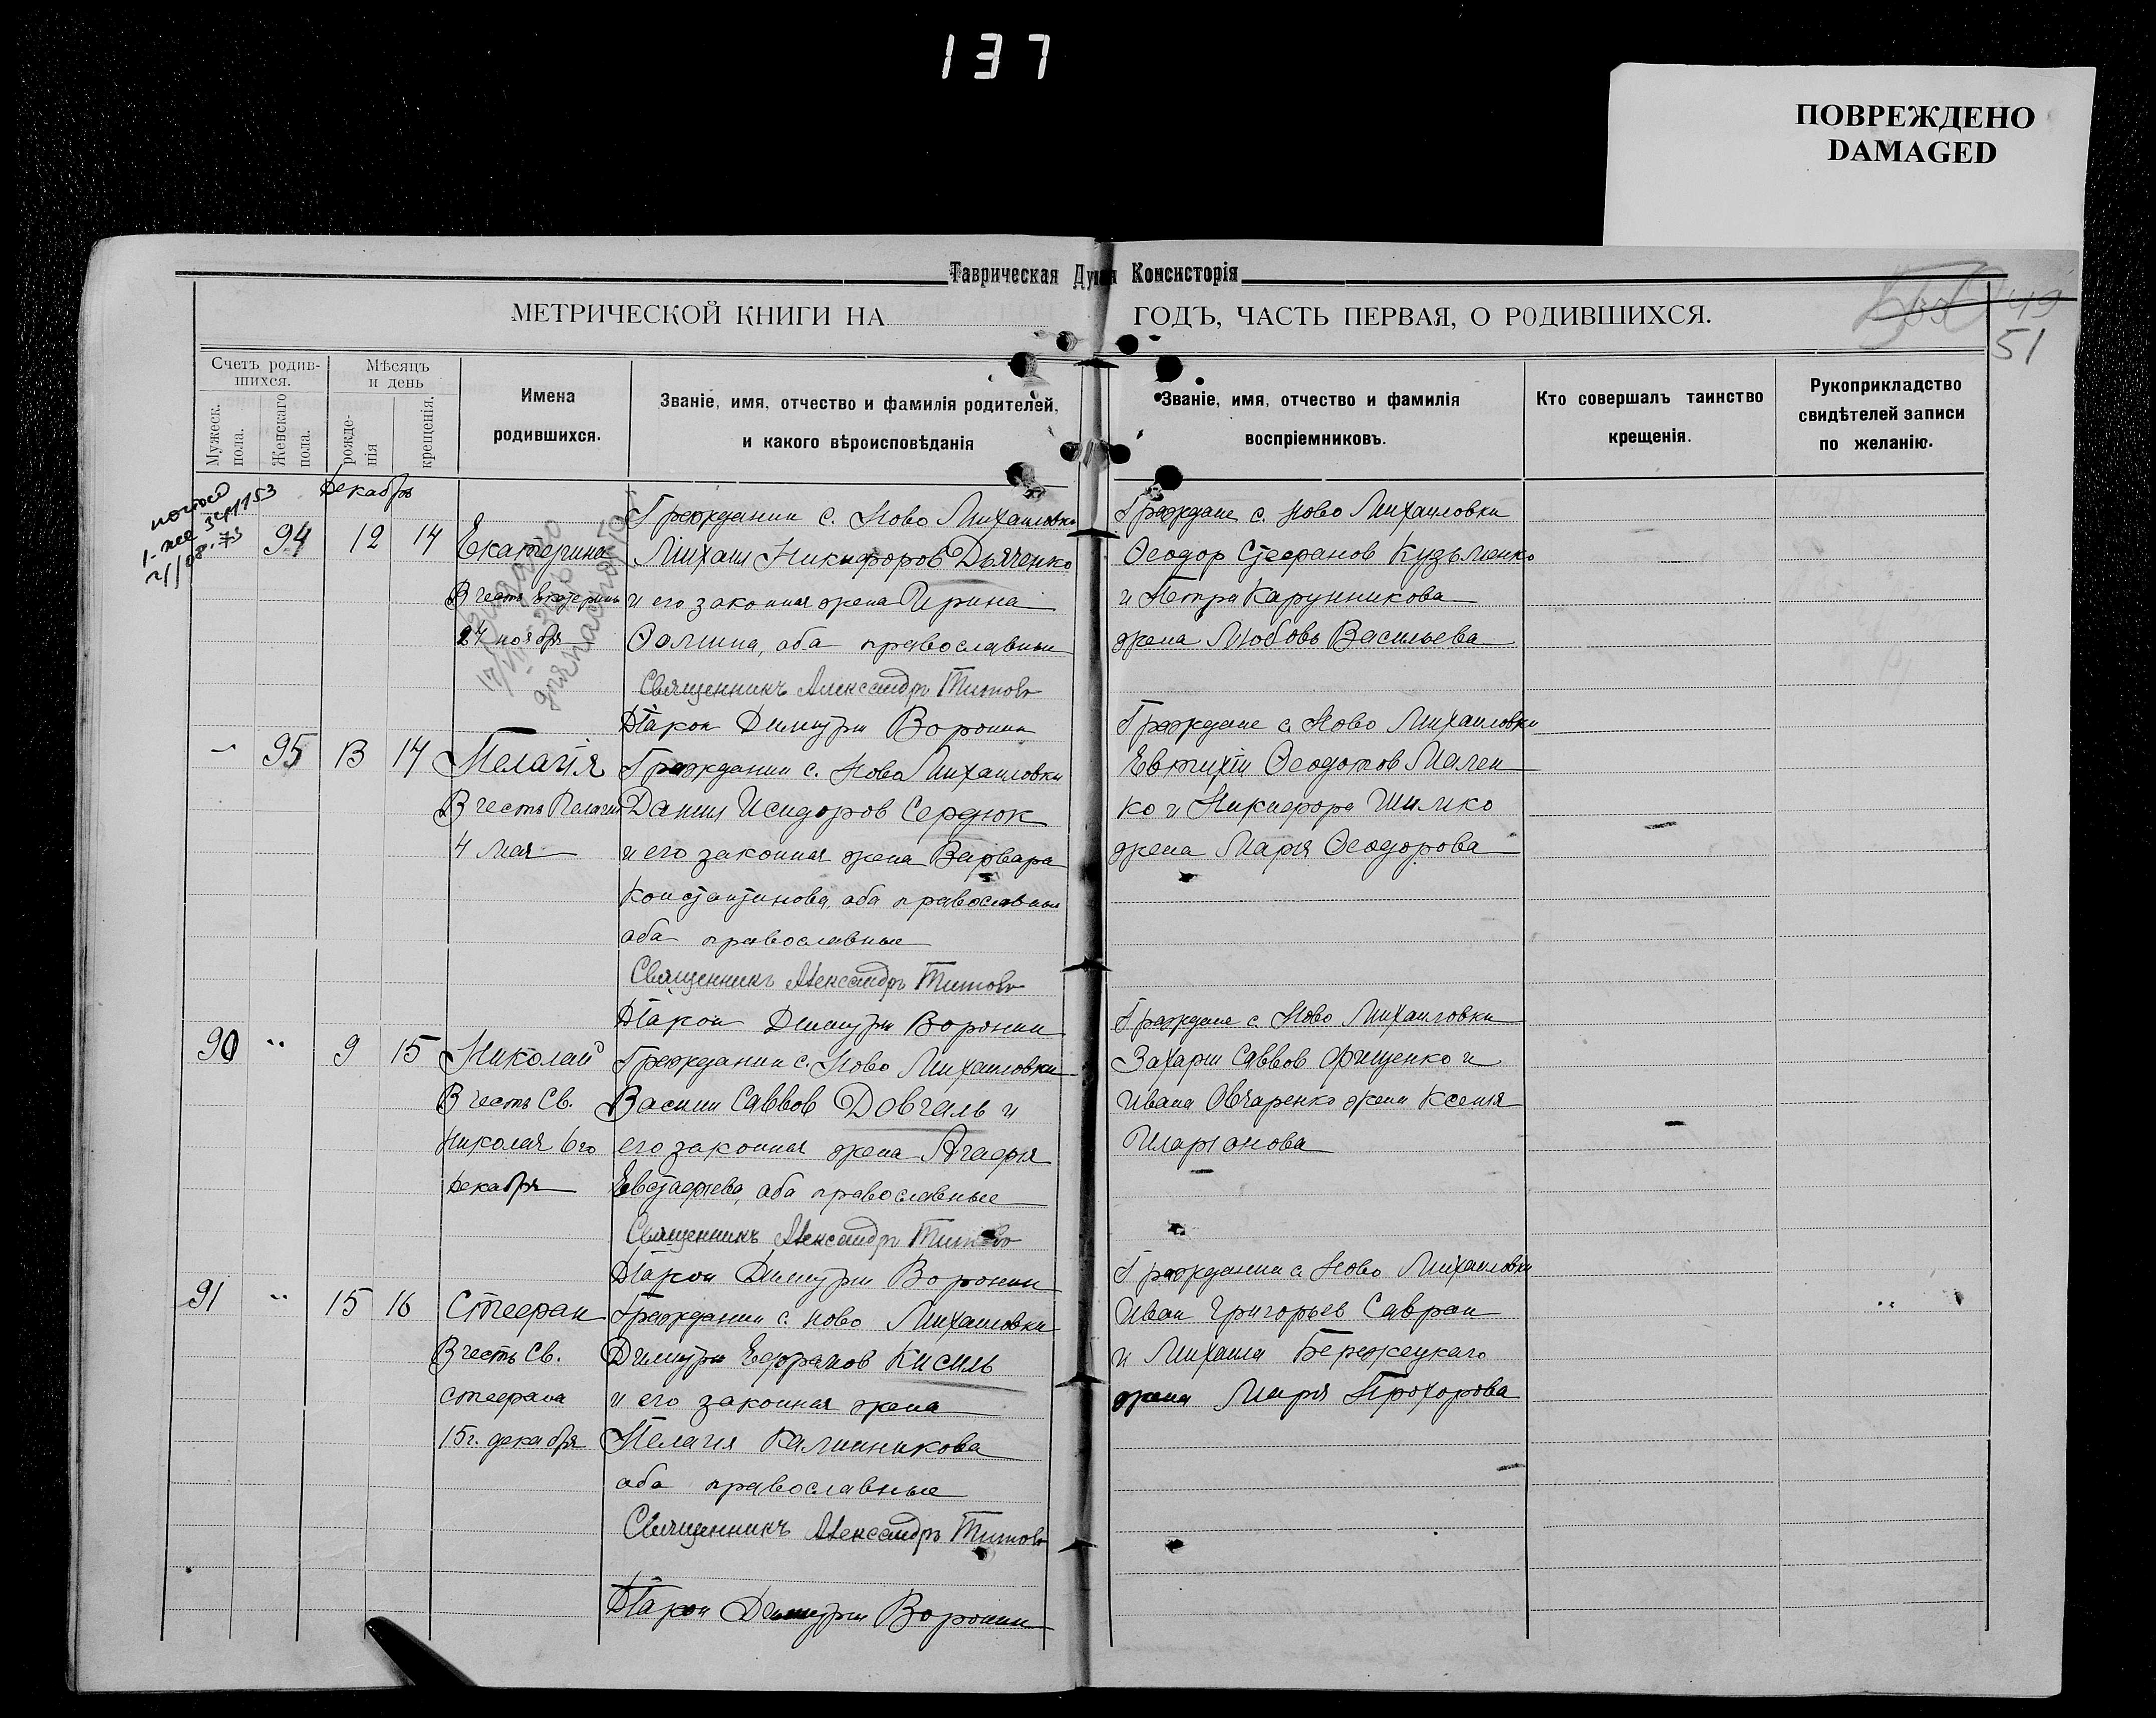 137
ПОВРЕЖДЕНО
DAMAGED
Таврическая Дух Консисторія
МЕТРИЧЕСКОЙ КНИГИ НА ГОДЪ, ЧАСТЬ ПЕРВАЯ, О РОДИВШИХСЯ.
49
51
Счетъ родив-
шихся.
Мужеск.
пола.
Женскаго
пола.
Мѣсяцъ
и день
рожде-
нія
крещенія.
Имена
родившихся.
Званіе, имя, отчество и фамилія родителей,
и какого вѣроисповѣданія
Званіе, имя, отчество и фамилія
воспріемниковъ.
Кто совершалъ таинство
крещенія.
Рукоприкладство
свидѣтелей записи
по желанію.
Декабрь
94 12 14
Екатерина
В честь Екатерины
24 ноября
Гражданин с. Ново Михаиловки
Михаил Никифоров Дьяченко
и его законная жена Ирина
Фомина, оба православныи
Священникъ Александръ Титовъ
Діакон Димитри Воронин
Граждане с. Ново Михаиловки
Феодор Стефанов Кузьменко
и Петра Карунникова
жена Любовь Васильева
95 13 14
Пелагія
В честь Пелагии
4 мая
Гражданин с. Ново Михаиловки
Данил Исидоров Сердюк
и его законная жена Варвара
Константинова, оба православныи
оба православные
Священникъ Александръ Титовъ
Діакон Димитри Воронин
Граждане с. Ново Михаиловки
Евтихій Феодотов Мален
ко и Никифора Шимко
жена Марія Феодорова
90 " 9 15
Николай
В честь Св.
Николая 6го
декабря
Гражданин с. Ново Михаиловки
Васили Саввов Довгаль и
его законная жена Агафія
Евстафіева, оба православные
Священникъ Александръ Титовъ
Діакон Димитри Воронин
Граждане с. Ново Михаиловки
Захари Саввов Фищенко и
Ивана Овчаренко жена Ксенія
Иларіонова
91 " 15 16
Стефан
В честь Св.
Стефана
15г. декабря
Гражданин с. Ново Михаиловки
Димитри Ефраимов Кисиль
и его законная жена
Пелагія Калинникова
оба православные
Священникъ Александръ Титовъ
Діакон Димитри Воронин
Гражданин с. Ново Михаиловки
Иван Григорьев Савран
и Михаила Бережецкаго
жена Марія Прохорова